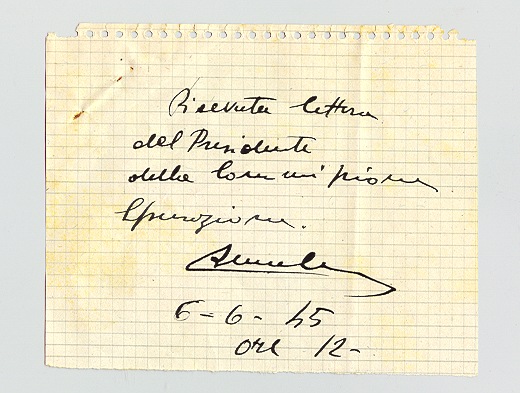 Ricevuta lettera
del Presidente
della Commissione
Epurazione.
6-6-45
ore 12-